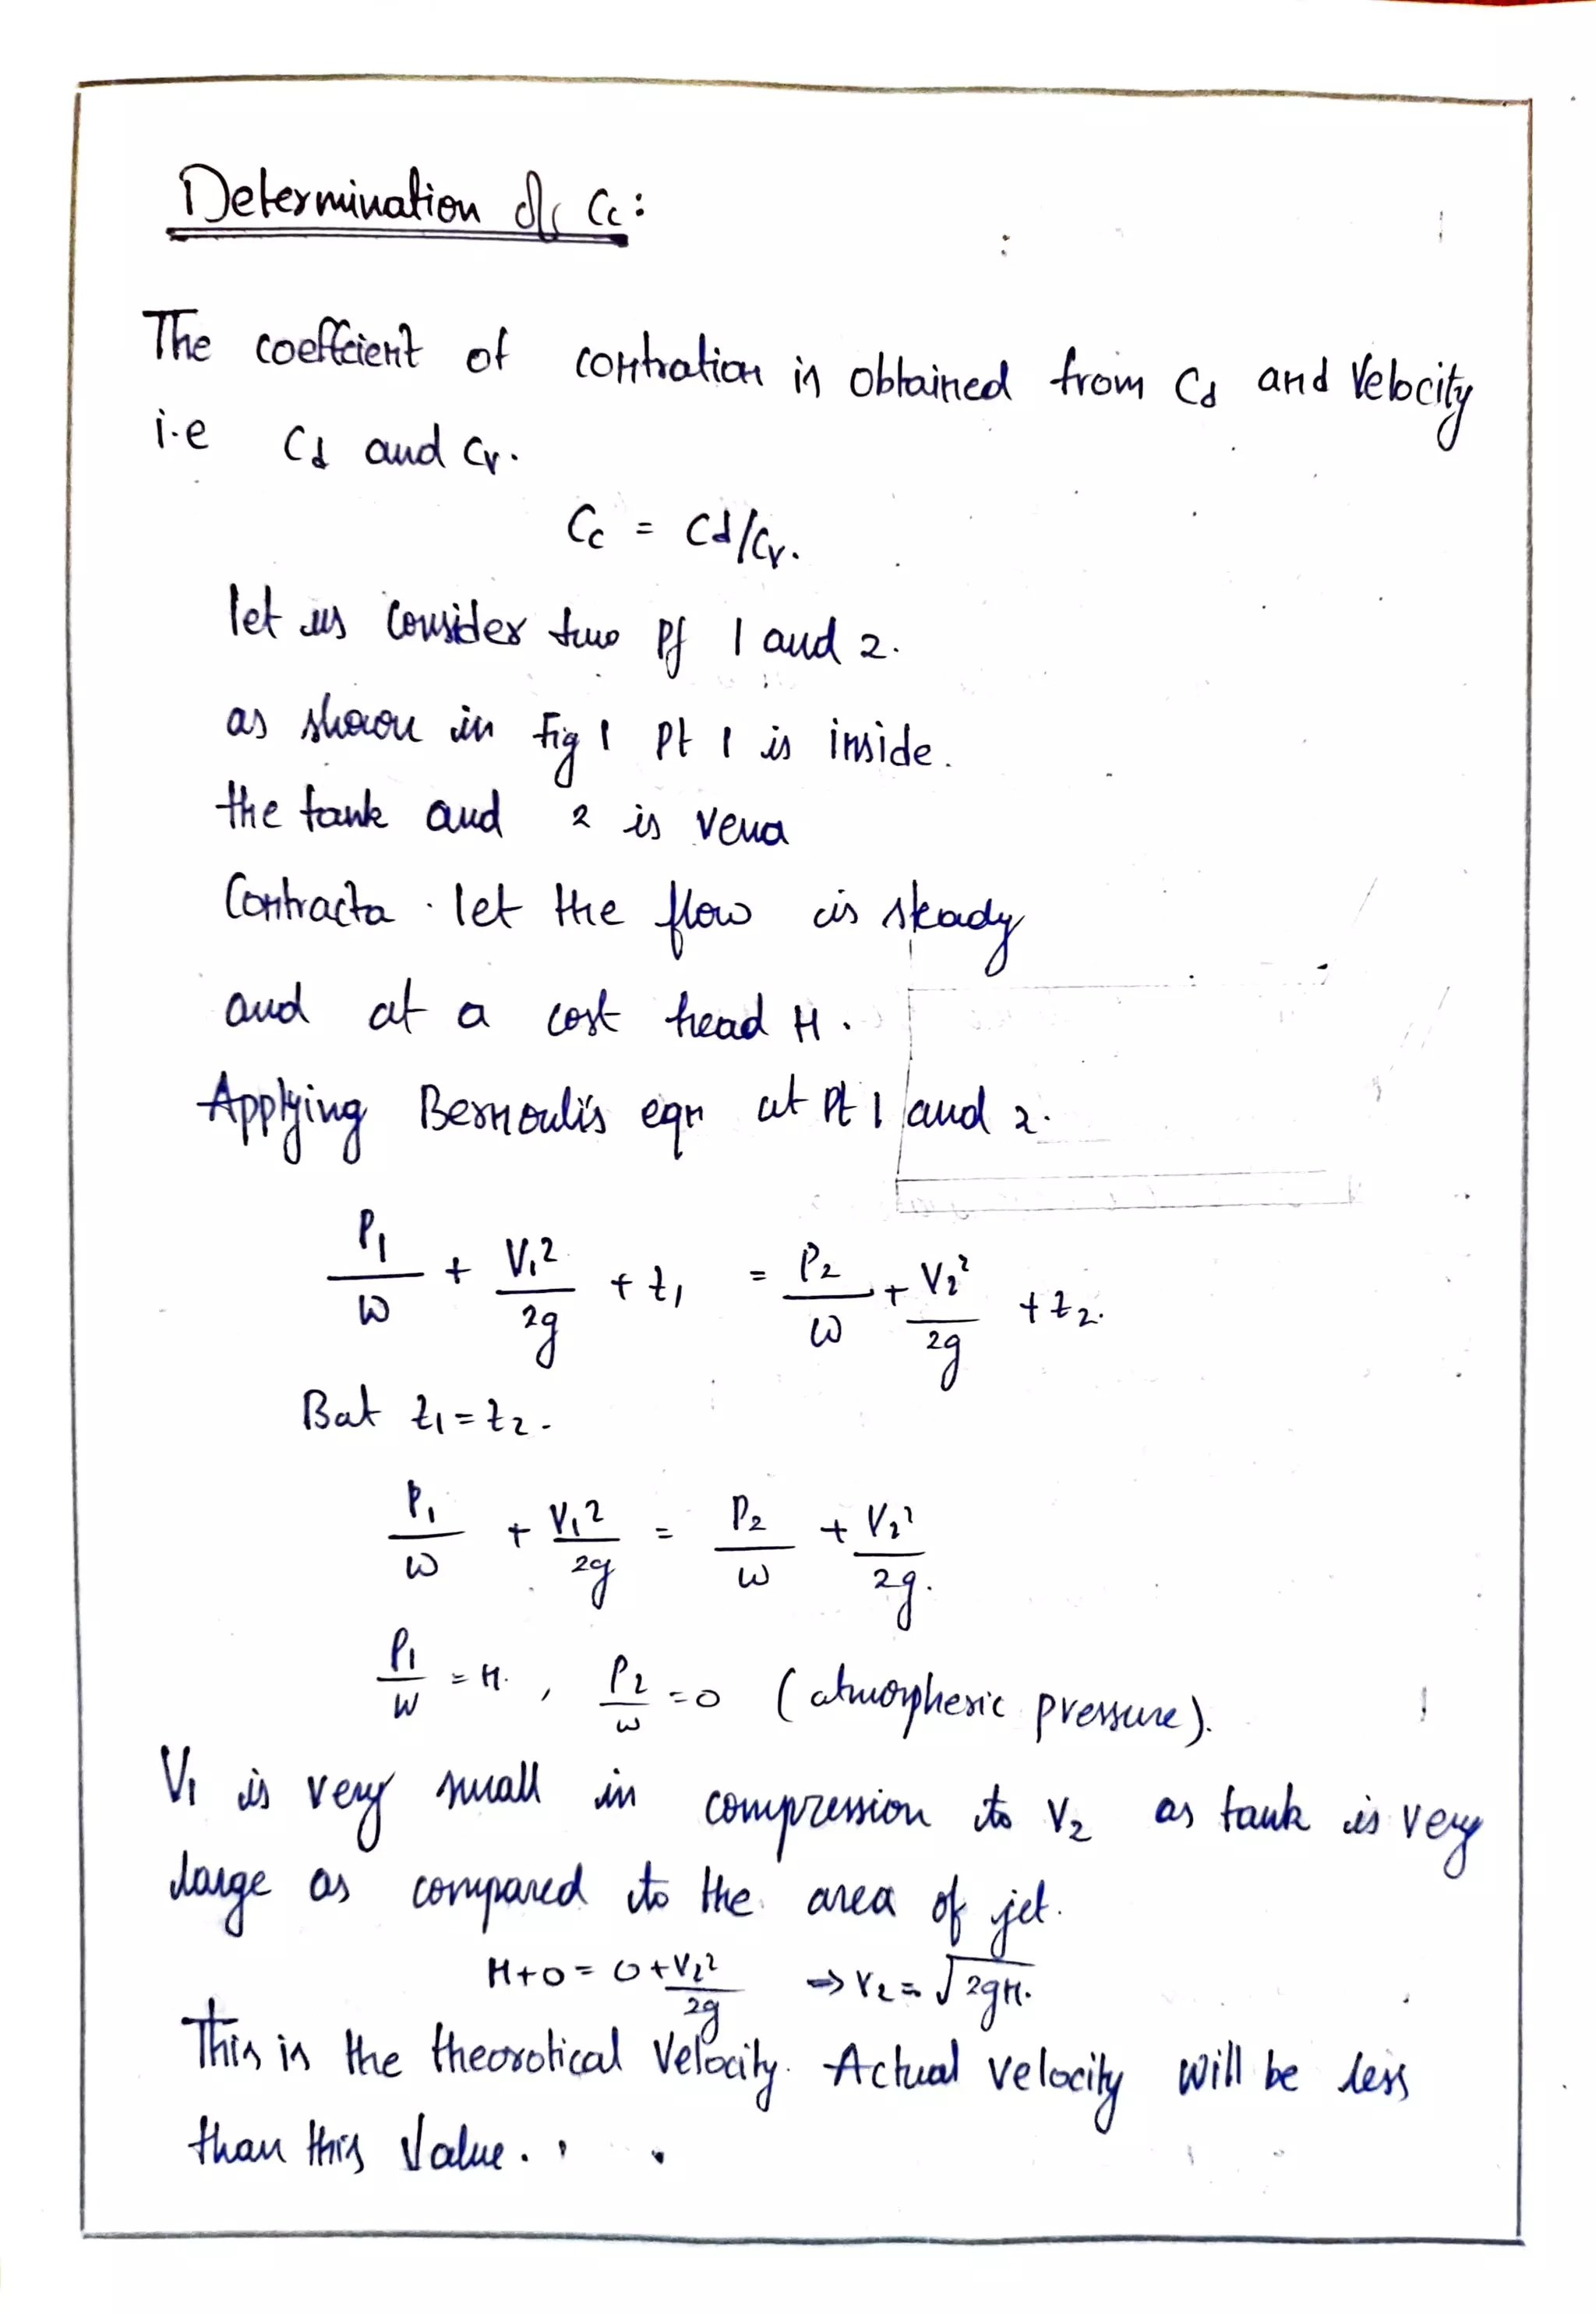 Determination of Cc:
The coeffcient of contration is obtained from Cd and Velocity
i.e Cd and Cv.
Cc = Cd/Cv.
let us Consider two Pt 1 and 2.
as shown in Fig 1 Pt 1 is inside.
the tank and 2 is vena
Contracta. let the flow is steady
and at a cost head H.
Applying Bernoulis eqn at Pt 1 and 2.
P1/W + V1²/2g + Z1 = P2/W + V2²/2g + Z2.
But Z1 = Z2.
P1/W + V1²/2g = P2/W + V2²/2g.
P1/W = H. , P2/W = 0 (atmospheric pressure).
V1 is very small in compression to V2 as tank is very
large as compared to the area of jet.
H+0 = 0 + V2²/2g ⇒ V2 = √2gH.
This is the theorotical Velocity. Actual velocity will be less
than this Value.